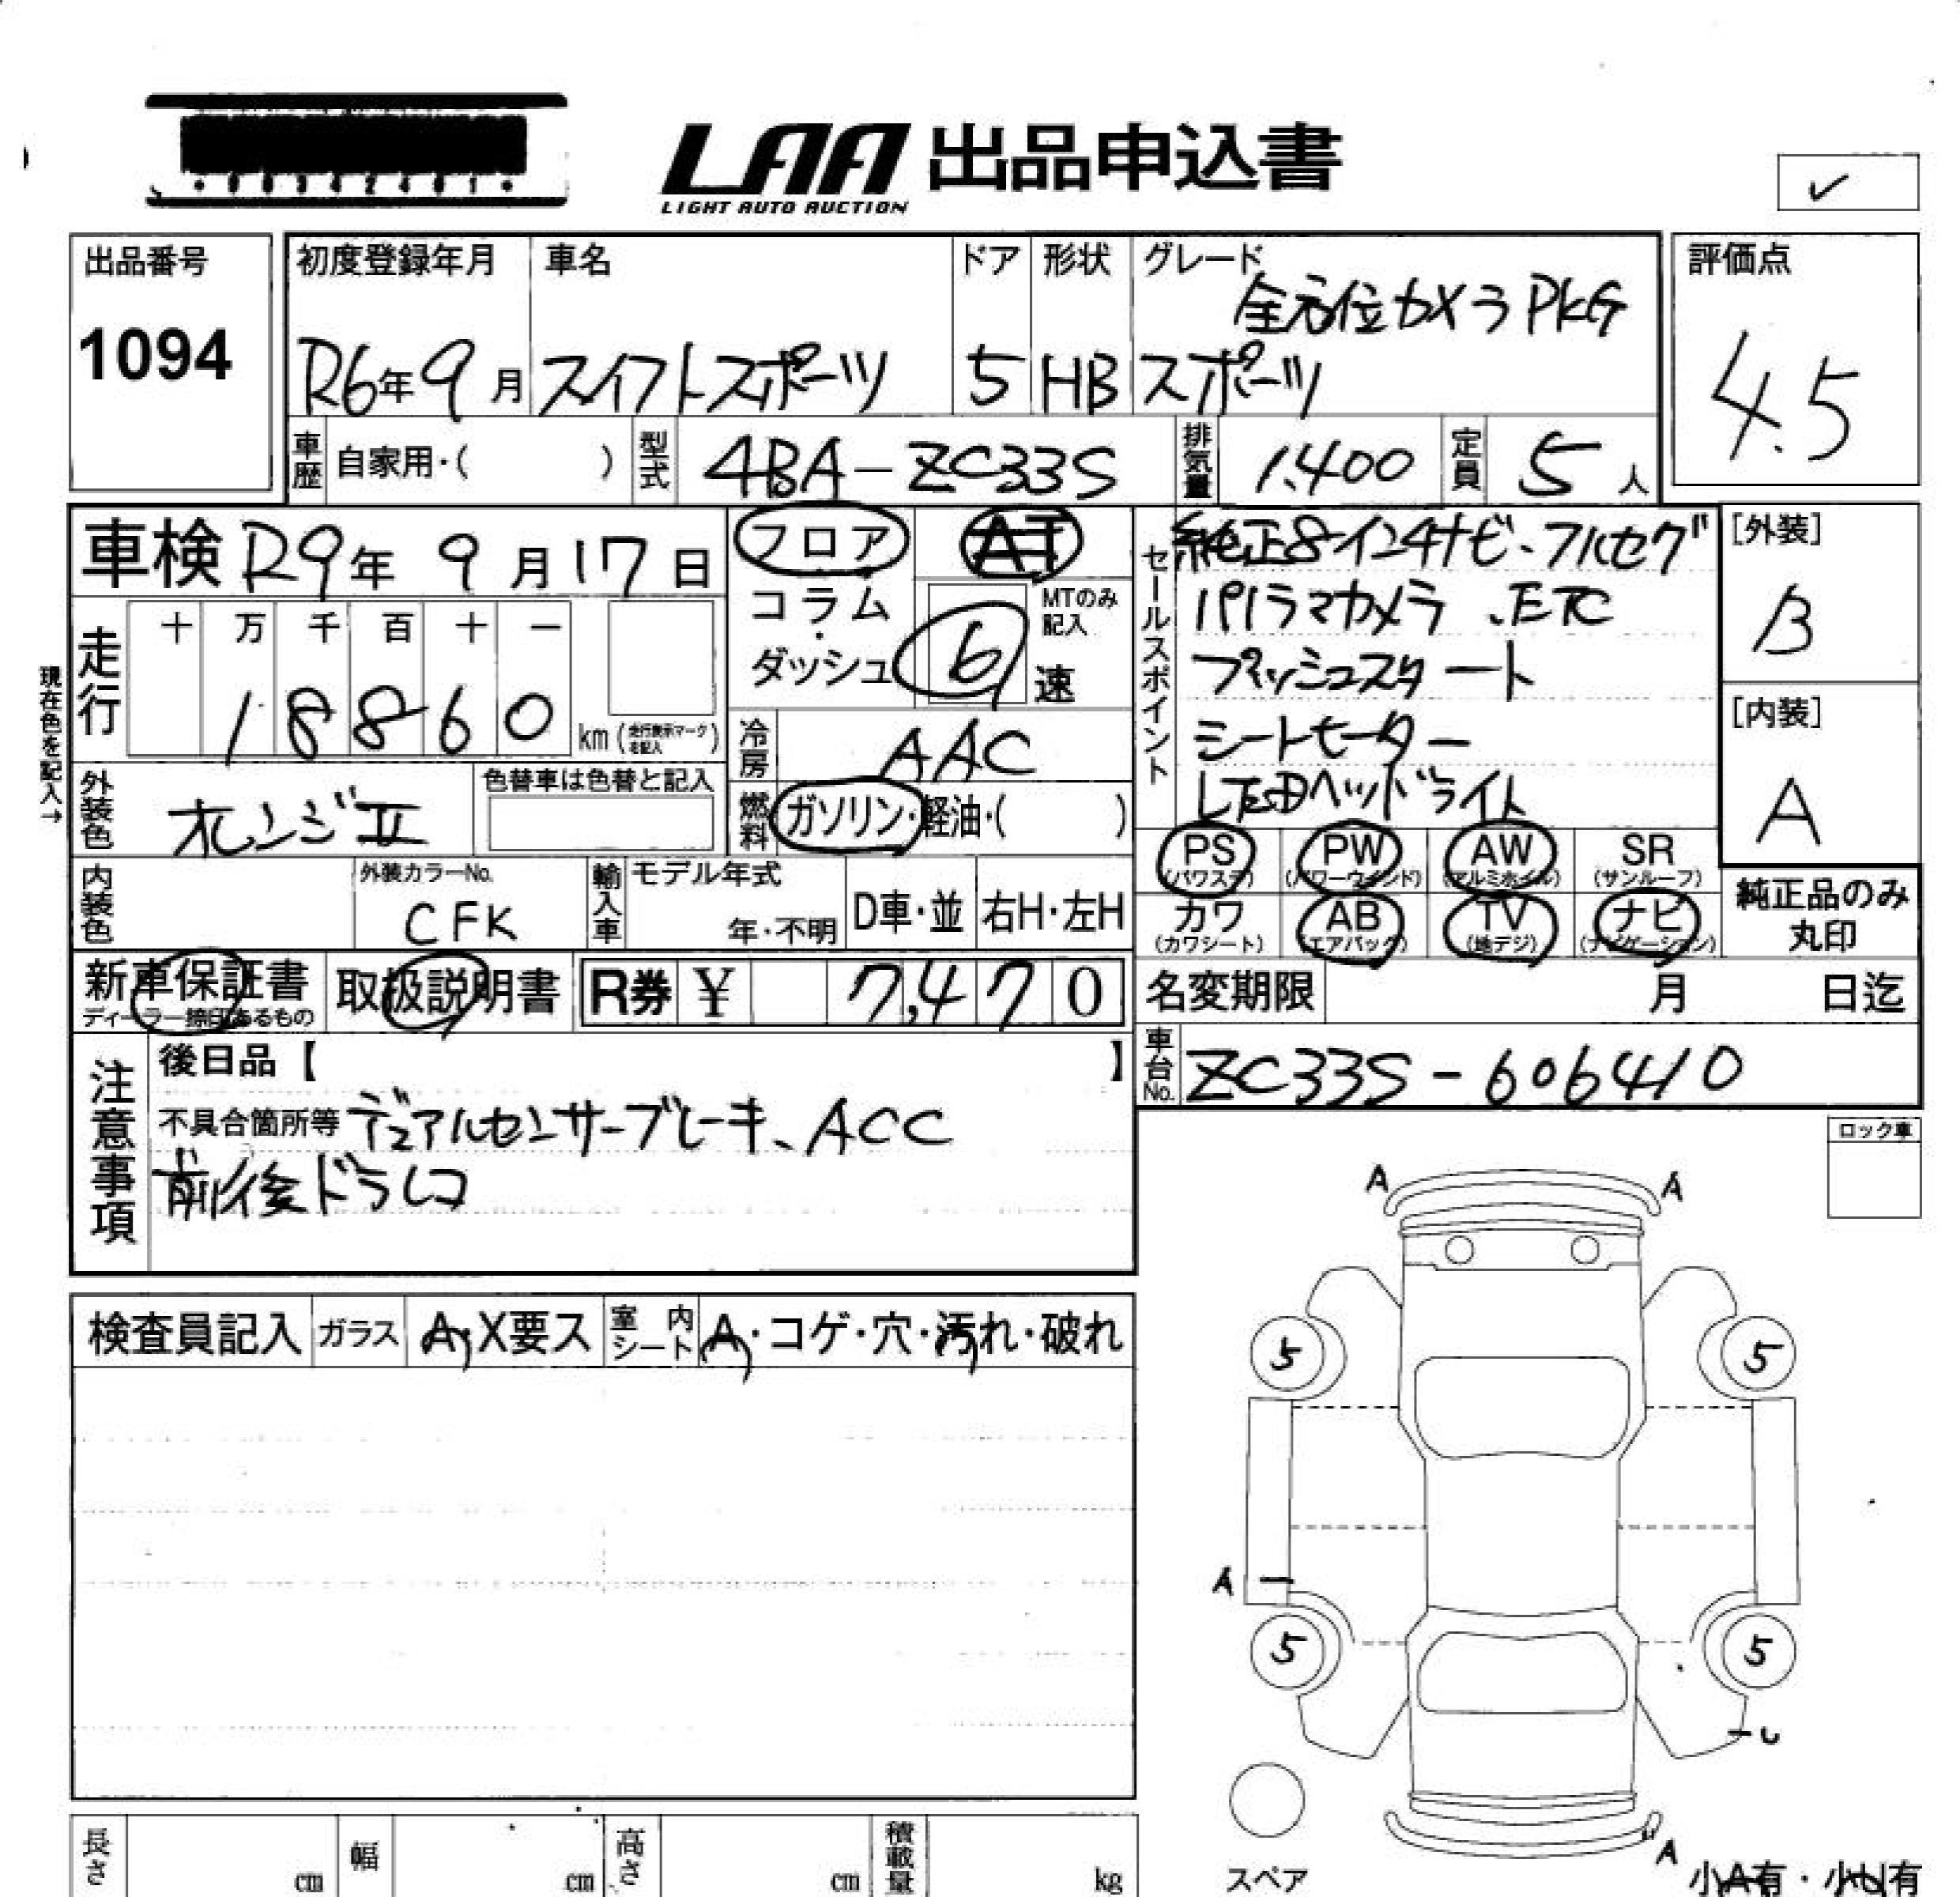 LAA 出品申込書
LIGHT AUTO AUCTION
出品番号
1094
初度登録年月
R6年9月
車名
スイフトスポーツ
ドア
5
形状
HB
グレード
全方位カメラPKG
スポーツ
評価点
4.5
車歴 自家用・( )
型式 4BA-ZC33S
排気量 1.400
定員 5人
車検 R9年 9月17日
走行 十 万 千 百 十 一
18860 km (走行表示マークを記入)
現在色を記入→
外装色 オレンジII
色替車は色替と記入
内装色
外装カラーNo.
CFK
フロア・コラム・ダッシュ
AT
MTのみ記入
6速
冷房 AAC
燃料 ガソリン・軽油・( )
輸入車 モデル年式
年・不明
D車・並
右H・左H
セールスポイント
純正8インチナビ・フルセグ
パノラマカメラ、ETC
プッシュスタート
シートヒーター
LEDヘッドライト
[外装]
B
[内装]
A
PS (パワステ)
PW (パワーウインド)
AW (アルミホイル)
SR (サンルーフ)
カワ (カワシート)
AB (エアバック)
TV (地デジ)
ナビ (ナビゲーション)
純正品のみ丸印
新車保証書
ディーラー捺印あるもの
取扱説明書
R券 ¥ 7,470
名変期限 月 日迄
車台No. ZC33S-606410
注意事項
後日品【 】
不具合箇所等 デュアルセンサーブレーキ、ACC
前後ドラレコ
ロック車
検査員記入 ガラス A・X要ス 室内シート A・コゲ・穴・汚れ・破れ
A A
5 5
A
5 5
A
スペア
小A有・小U有
長さ cm
幅 cm
高さ cm
積載量 kg